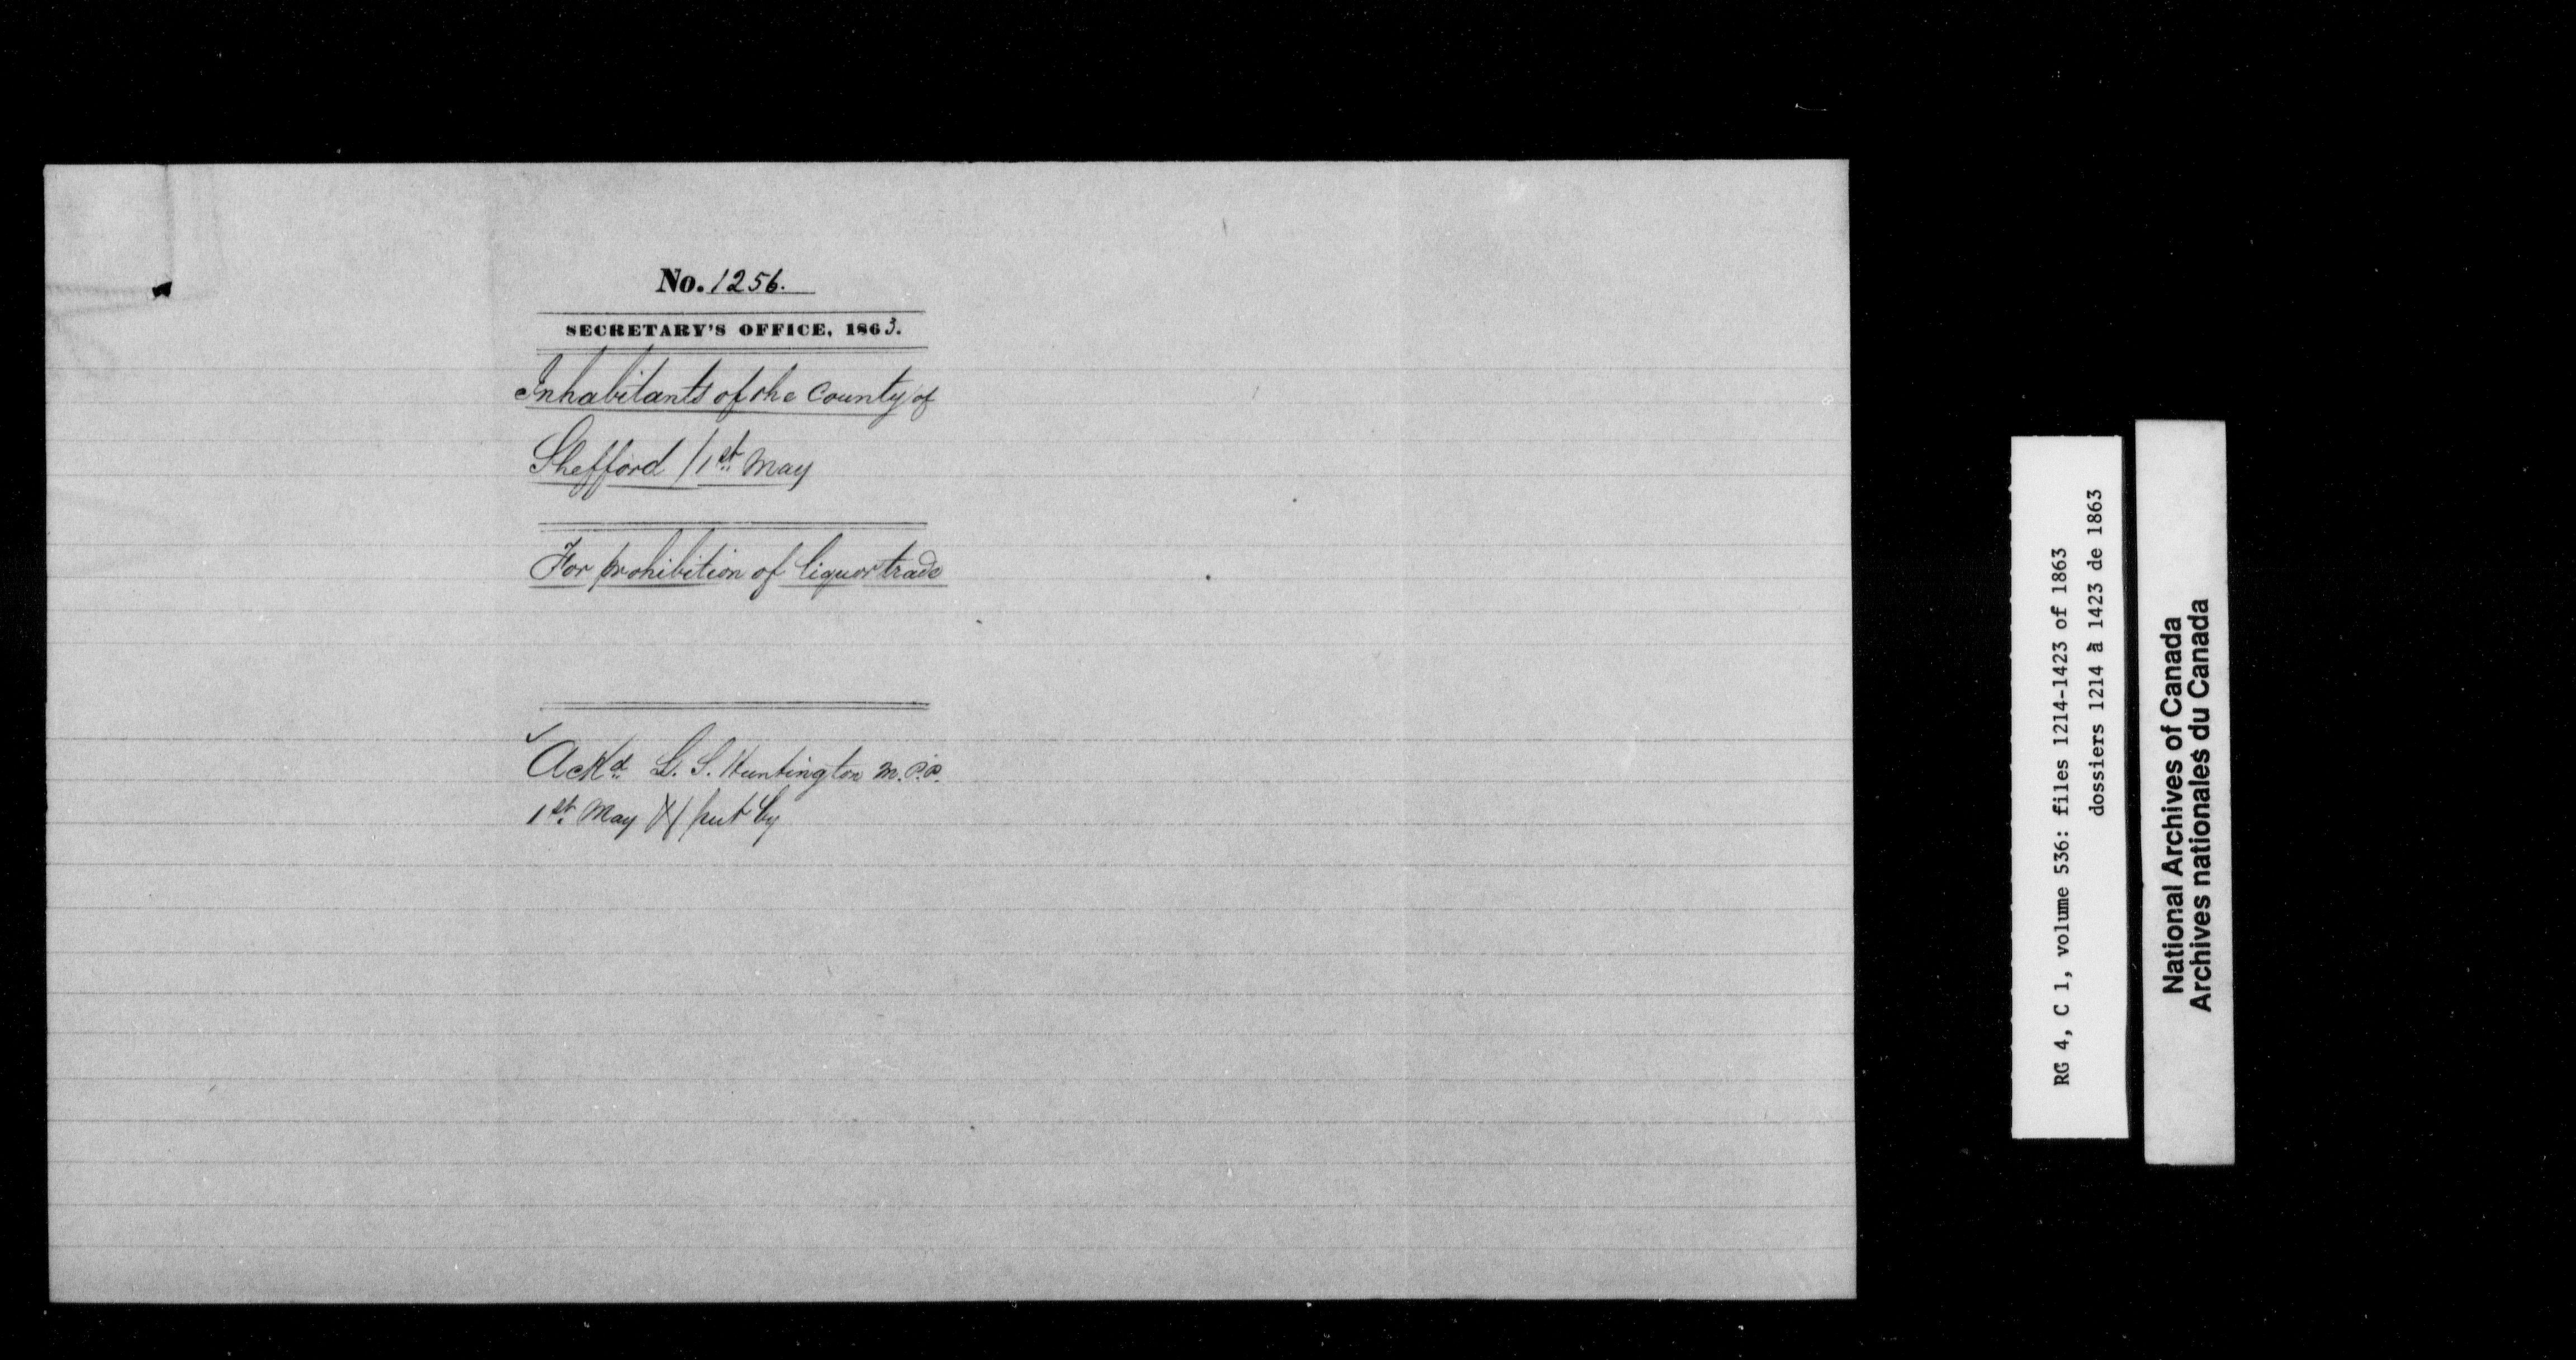 No. 1256.
SECRETARY'S OFFICE, 1863.
Inhabitants of the County of
Shefford / 1st May
For prohibition of liquor trade
Ackd. L. S. Huntington M.P.P.
1st May put by
RG 4, C 1, volume 536: files 1214-1423 of 1863
dossiers 1214 à 1423 de 1863
National Archives of Canada
Archives nationales du Canada